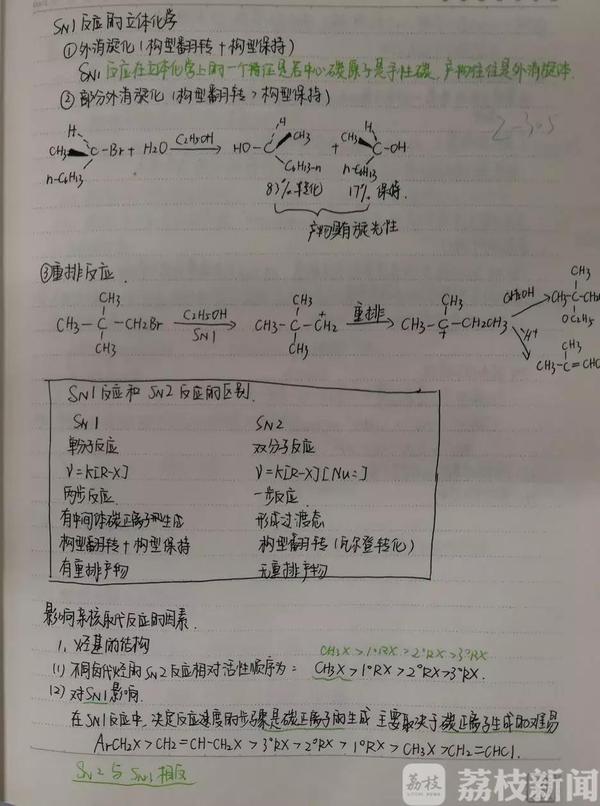 SN1反应的立体化学
①外消旋化(构型翻转+构型保持)
SN1反应在立体化学上的一个特征是若中心碳原子是手性碳,产物往往是外消旋体.
②部分外消旋化(构型翻转>构型保持)
2-305
H H H
CH3 C-Br + H2O C2H5OH HO-C CH3 + CH3 C-OH
n-C6H13 C6H13-n n-C6H13
83%转化 17%保持.
产物具有旋光性
③重排反应.
CH3 CH3 CH3 CH3
CH3-C-CH2Br C2H5OH SN1 CH3-C-CH2 + 重排 CH3-C-CH2CH3 + C2H5OH CH3-C-CH2
CH3 CH3 -H+ OC2H5
CH3
CH3-C=CHC
SN1反应和SN2反应的区别.
SN1 SN2
单分子反应 双分子反应
V=K[R-X] V=K[R-X][Nu:]
两步反应 一步反应
有中间体碳正离子型生成 形成过渡态
构型翻转+构型保持 构型翻转(瓦尔登转化)
有重排产物 无重排产物
影响亲核取代反应的因素.
1、烃基的结构
CH3X>1°RX>2°RX>3°RX
(1)不同卤代烃的SN2反应相对活性顺序为: CH3X>1°RX>2°RX>3°RX.
(2)对SN1影响.
在SN1反应中,决定反应速度的步骤是碳正离子的生成 主要取决于碳正离子生成的难易
ArCH2X>CH2=CH-CH2X>3°RX>2°RX>1°RX>CH3X>CH2=CHCl.
SN2与SN1相反
荔枝
LITCHI NEWS
荔枝新闻